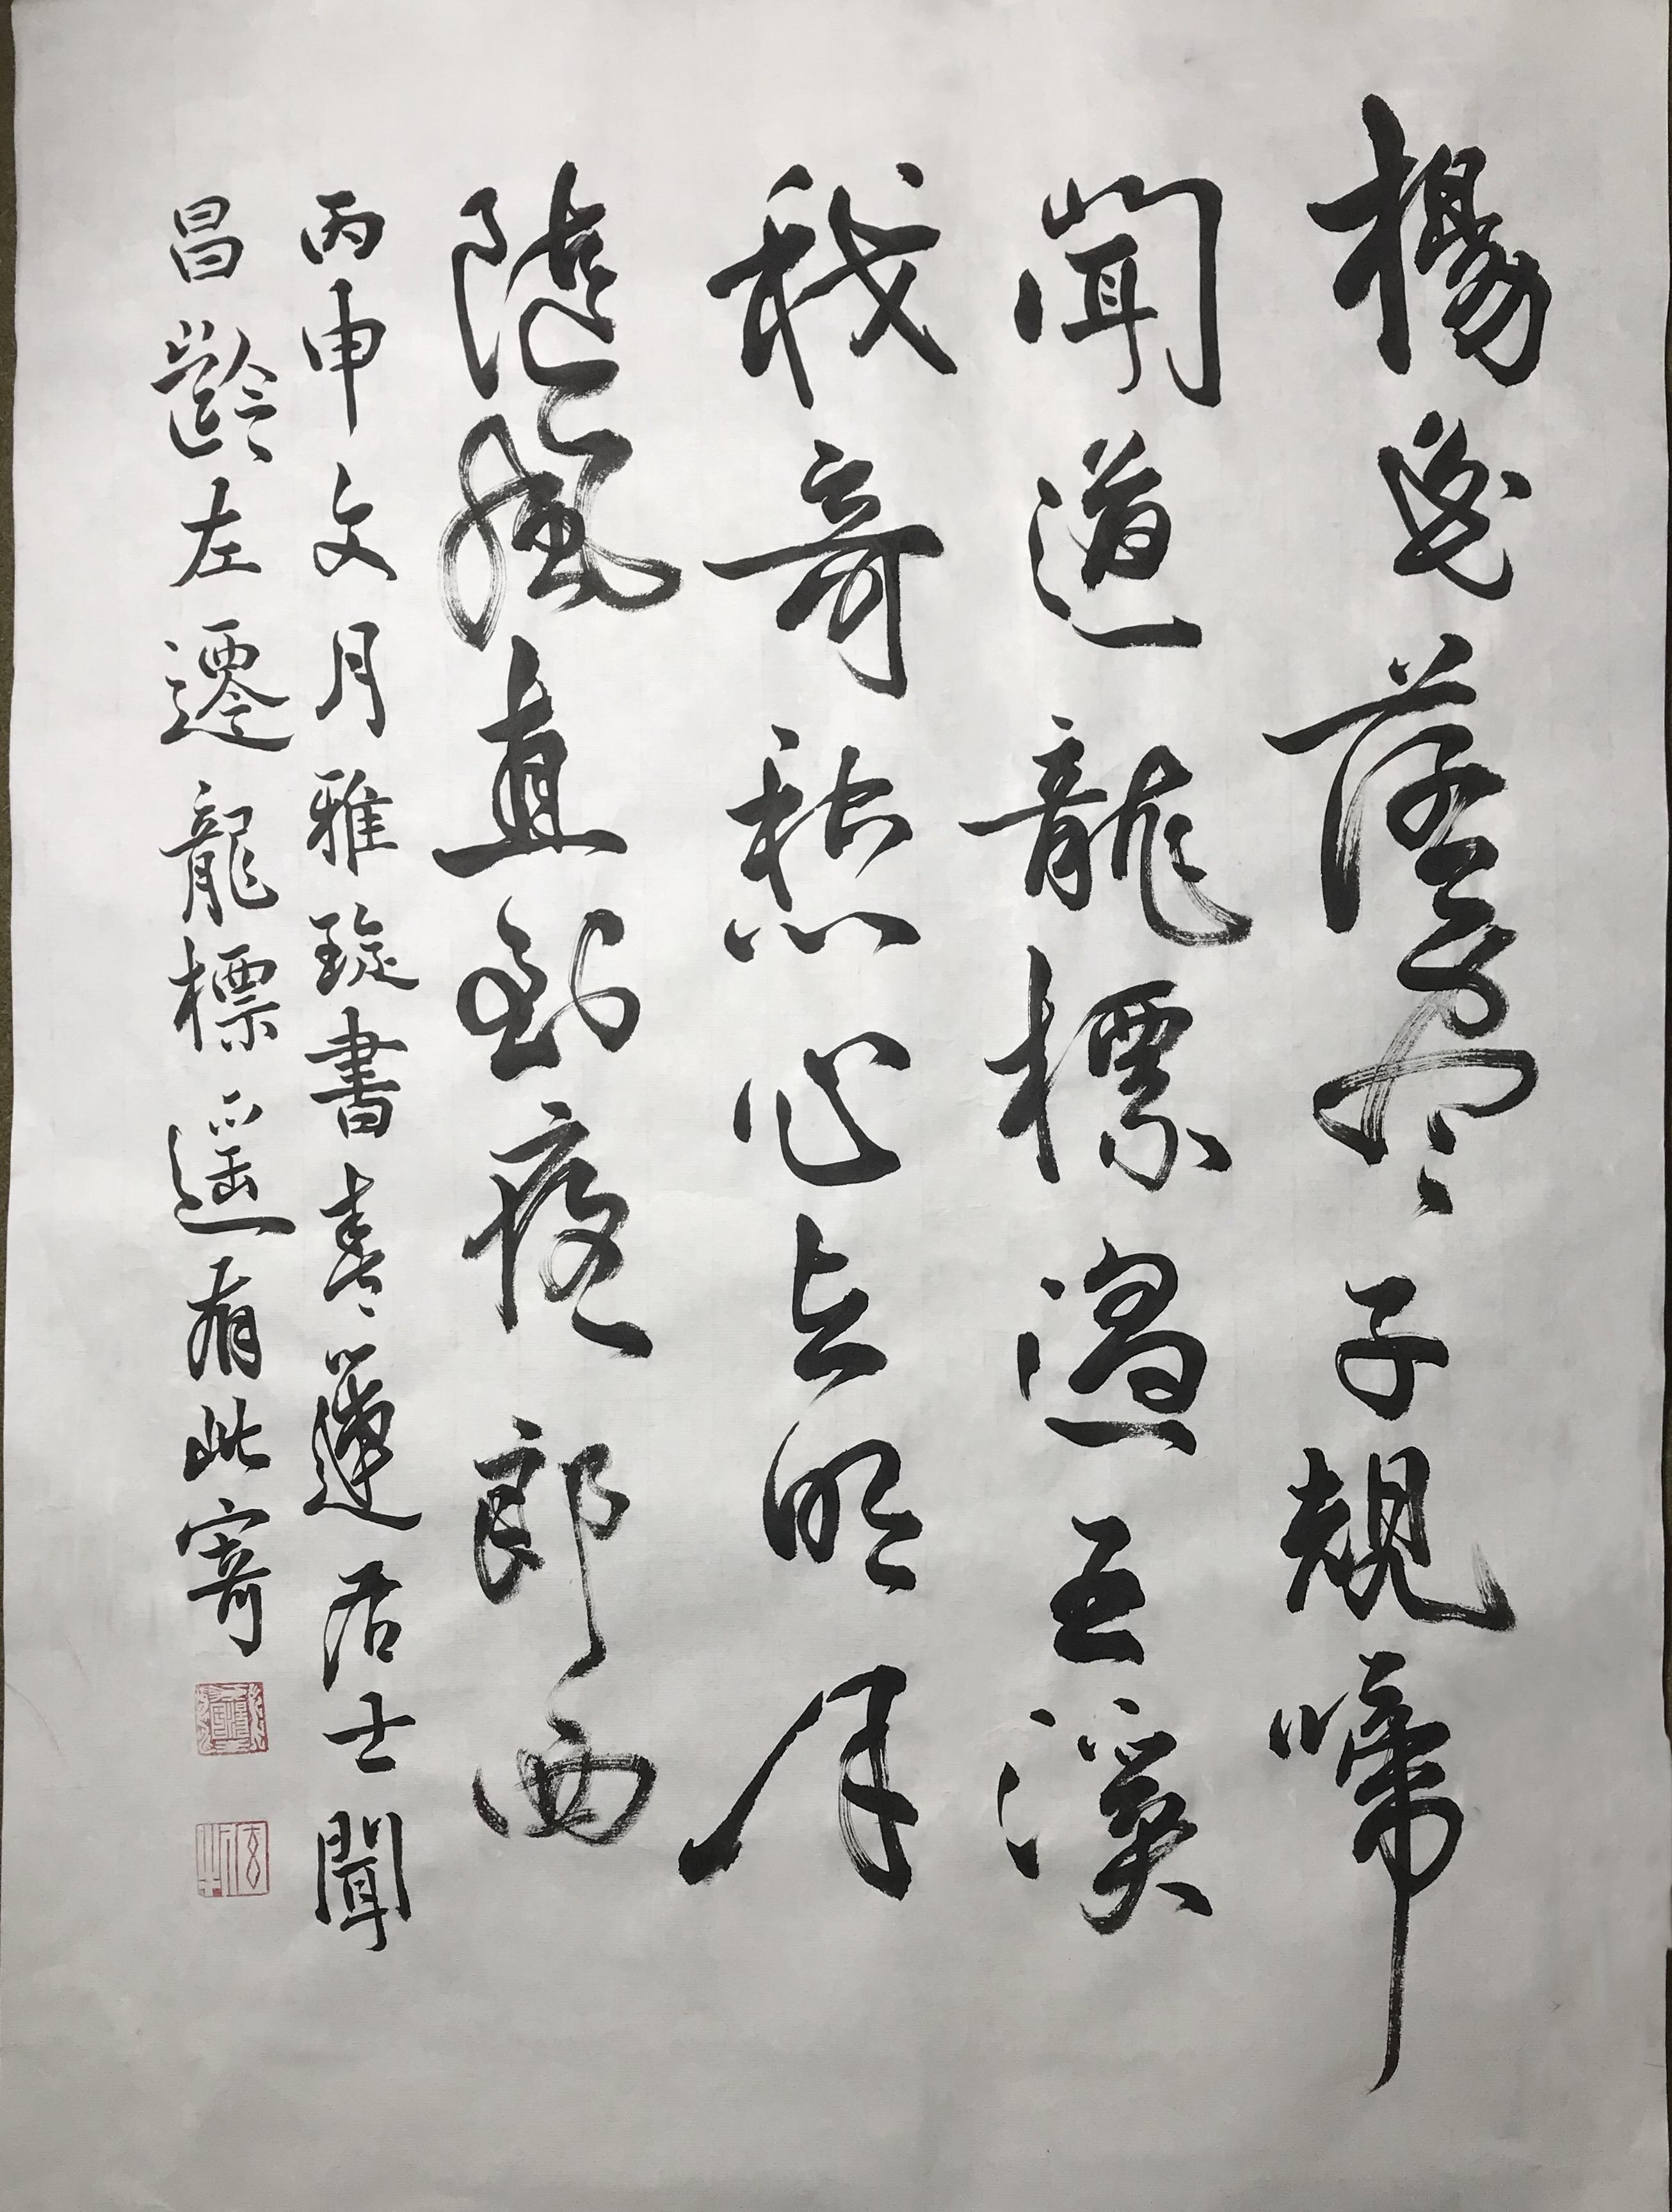 楊花落尽子規啼
聞道龍標過五溪
我寄愁心与明月
随風直到夜郎西
丙申文月雅琁書青蓮居士聞
昌齡左遷龍標遥有此寄